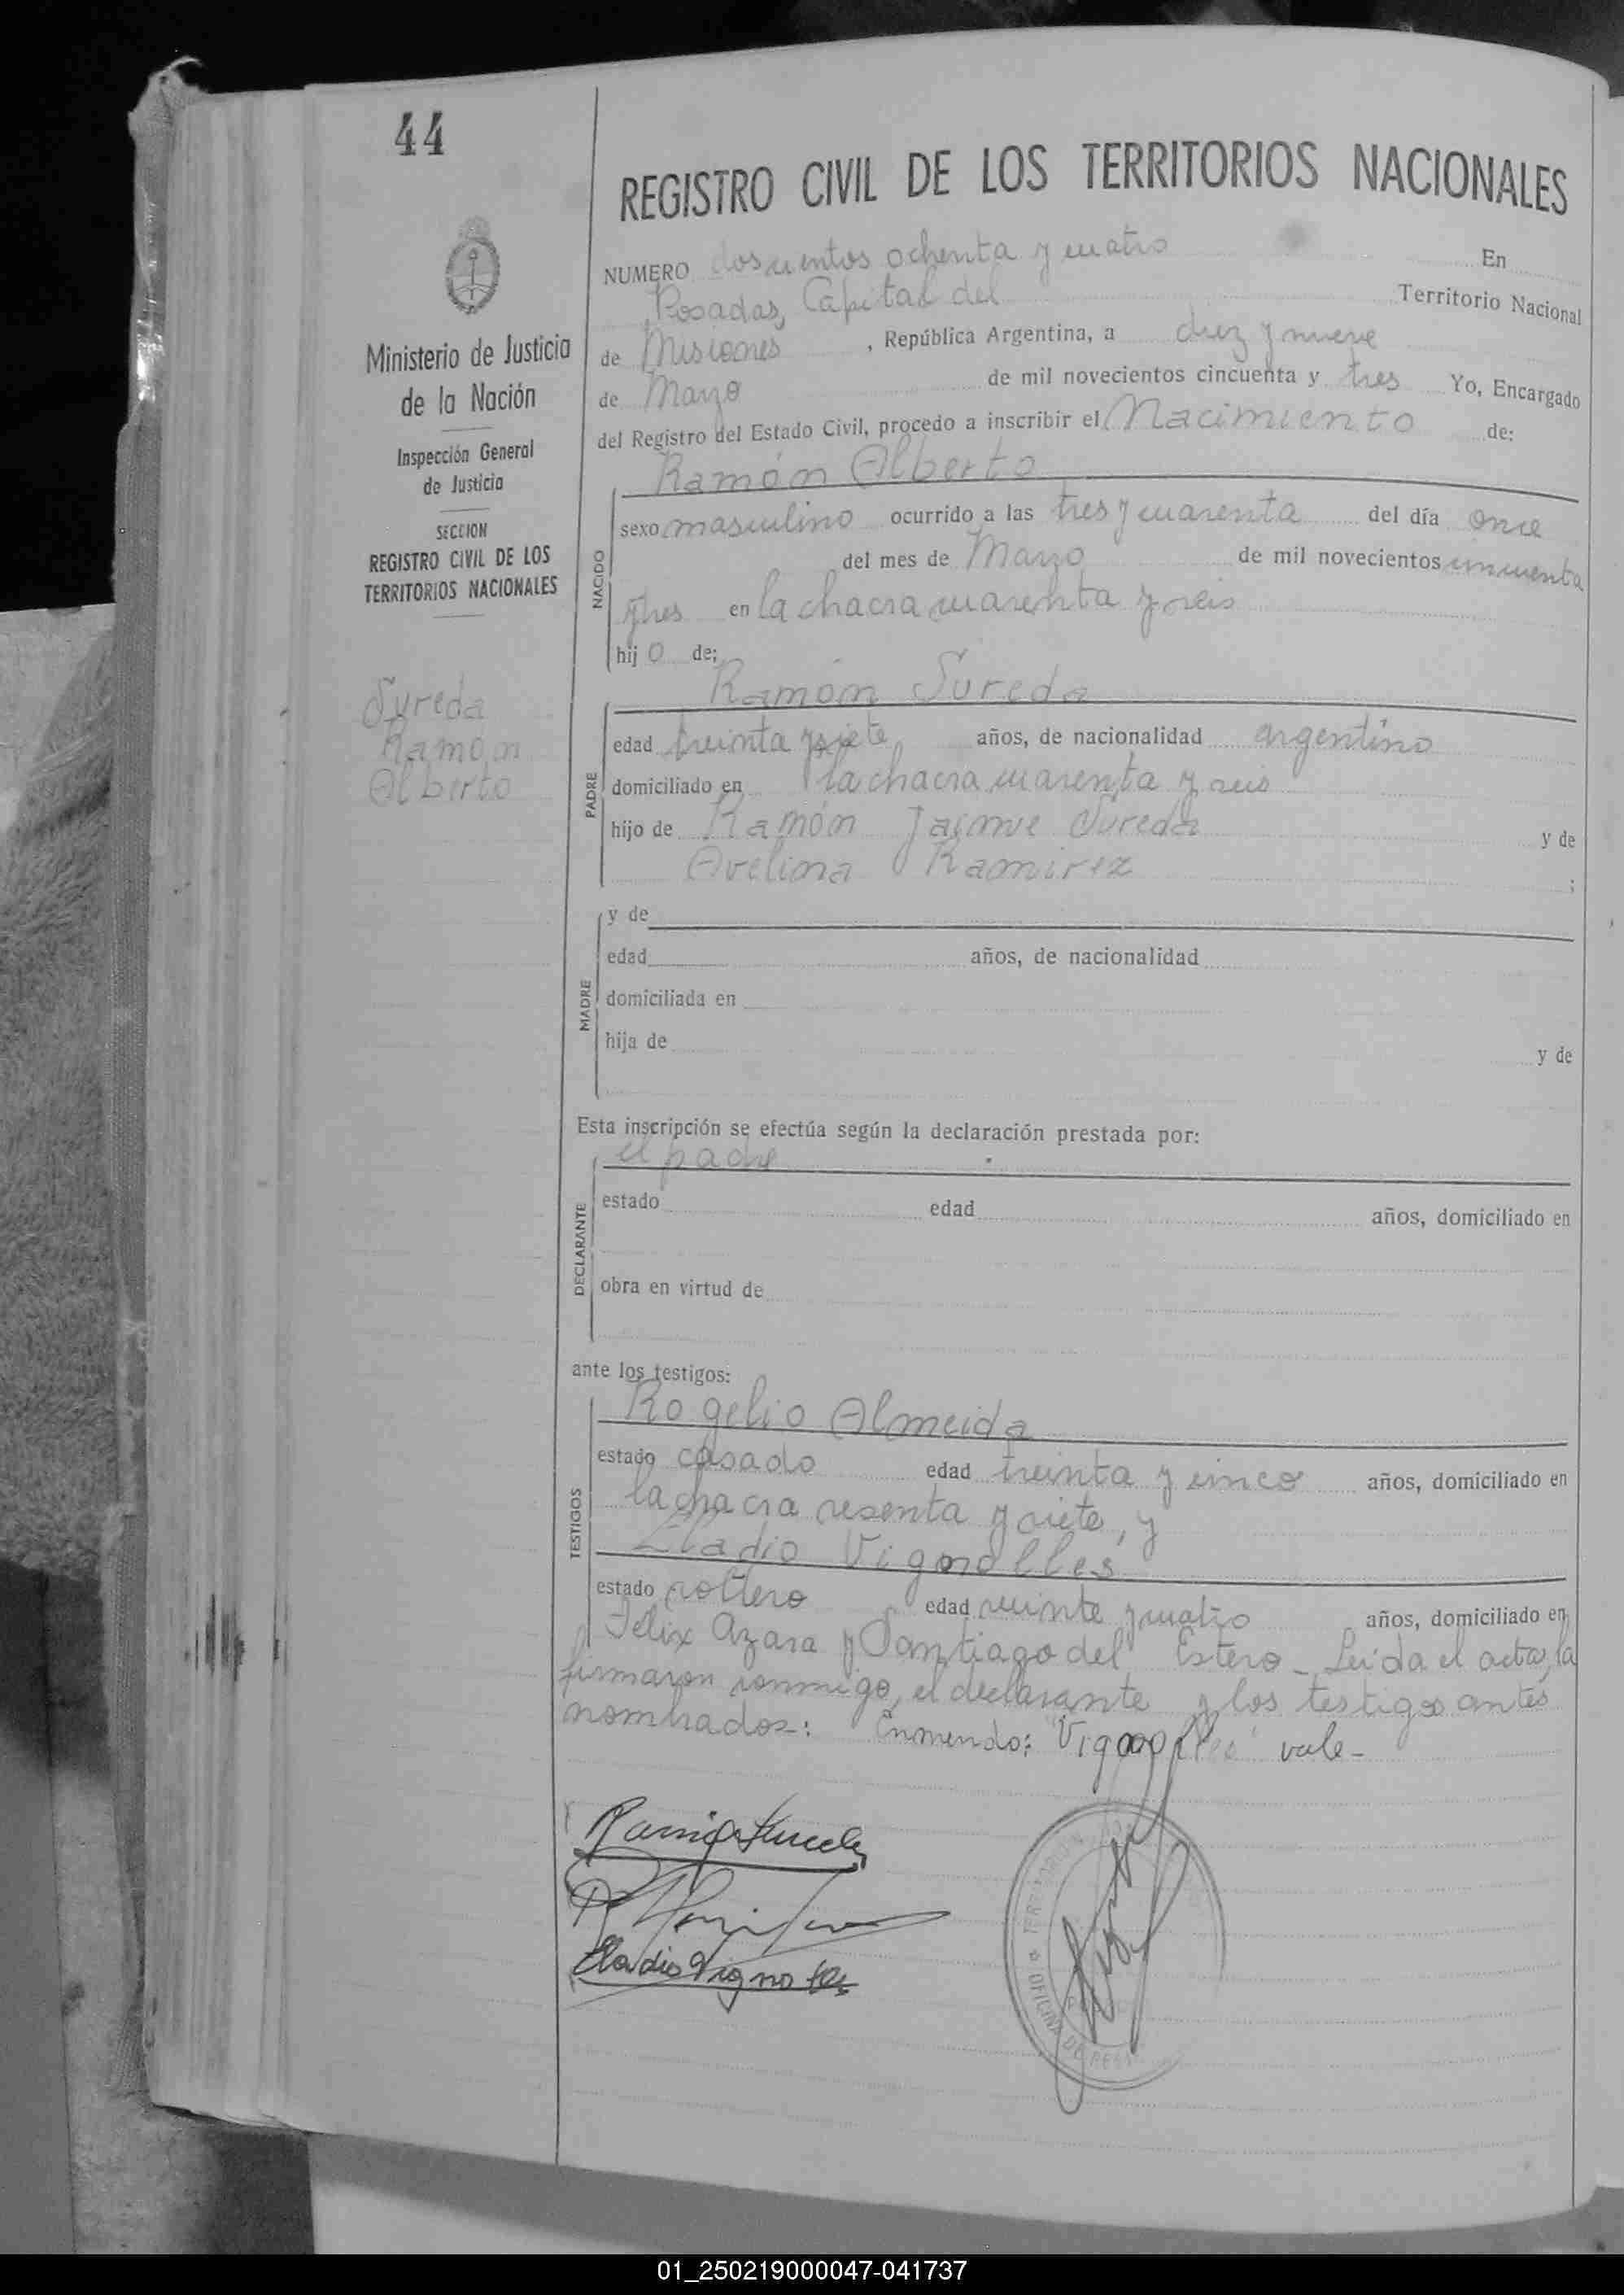 44
REGISTRO CIVIL DE LOS TERRITORIOS NACIONALES
NUMERO doscientos ochenta y cuatro En
Posadas, Capital del Territorio Nacional
de Misiones, República Argentina, a diez y nueve
de Marzo de mil novecientos cincuenta y tres Yo, Encargado
del Registro del Estado Civil, procedo a inscribir el Nacimiento de:
Ministerio de Justicia
de la Nación
Inspección General
de Justicia
SECCION
REGISTRO CIVIL DE LOS
TERRITORIOS NACIONALES
Sureda
Ramón
Alberto
NACIDO
Ramón Alberto
sexo masculino ocurrido a las tres y cuarenta del día once
del mes de Marzo de mil novecientos cincuenta
y tres en la chacra cuarenta y seis
hij o de;
PADRE
Ramón Sureda
edad treinta y siete años, de nacionalidad argentino
domiciliado en la chacra cuarenta y seis
hijo de Ramón Jaime Sureda y de
Avelina Ramirez ;
MADRE
y de
edad años, de nacionalidad
domiciliada en
hija de y de
Esta inscripción se efectúa según la declaración prestada por:
DECLARANTE
el padre
estado edad años, domiciliado en
obra en virtud de
ante los testigos:
TESTIGOS
Rogelio Almeida
estado casado edad treinta y cinco años, domiciliado en
la chacra sesenta y siete, y
Eladio Vignolles
estado soltero edad veinte y cuatro años, domiciliado en
Felix Azara y Santiago del Estero - Leída el acta, la
firmaron conmigo, el declarante y los testigos antes
nombrados: Enmendo: "Vignolles" vale-
Ramón Sureda
Eladio Vignolles
TERRITORIOS
OFICINA DE
01_250219000047-041737